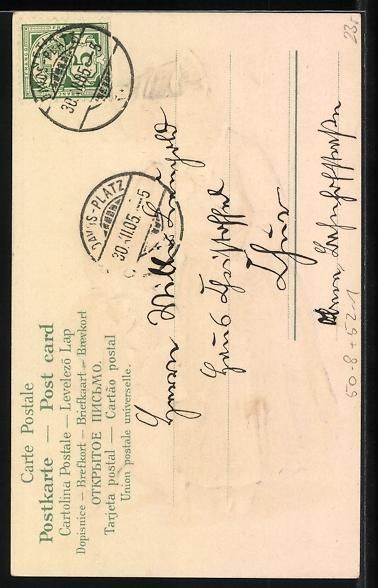 Carte Postale
Postkarte — Post card
Cartolina Postale — Levelező Lap
Dopisnice — Brefkort — Briefkaart — Brevkort
ОТКРЫТОЕ ПИСЬМО.
Tarjeta postal — Cartão postal
Union postale universelle.
5
DAVOS-PLATZ
30.XII.05
DAVOS-PLATZ
30.XII.05.-5
Herrn Willi
Haus
Chur
50-8+52-1
23.